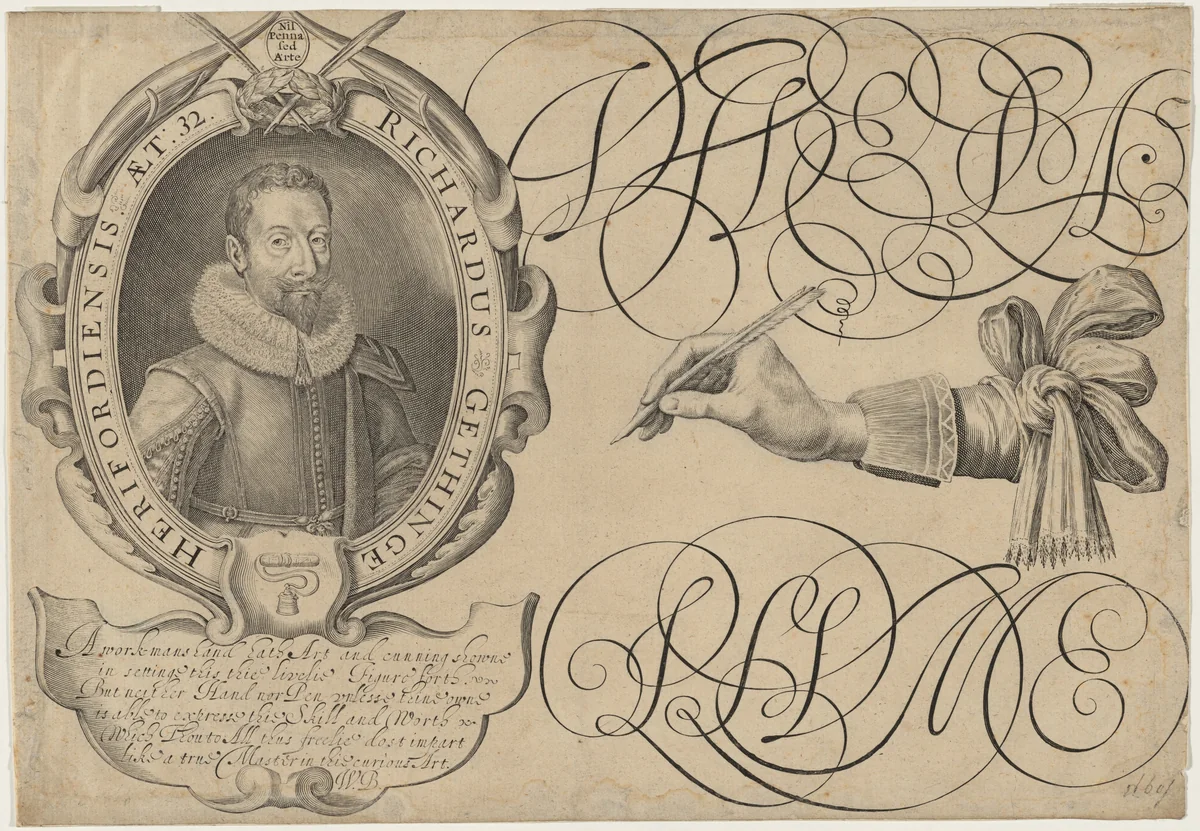 Nil
Penna
ſed
Arte
HERIFORDIENSIS ÆT: 32. RICHARDUS GETHINGE
VIVE LA
PLUME
A workmans hand hath Art and cunning showne
in settinge this thie livelie Figure forth
But neither Hand nor Pen vnlesse thine owne
is able to expresse thie Skill and Worth
Which Thou to All thus freelie dost impart
like a true Master in this curious Art.
W.B.